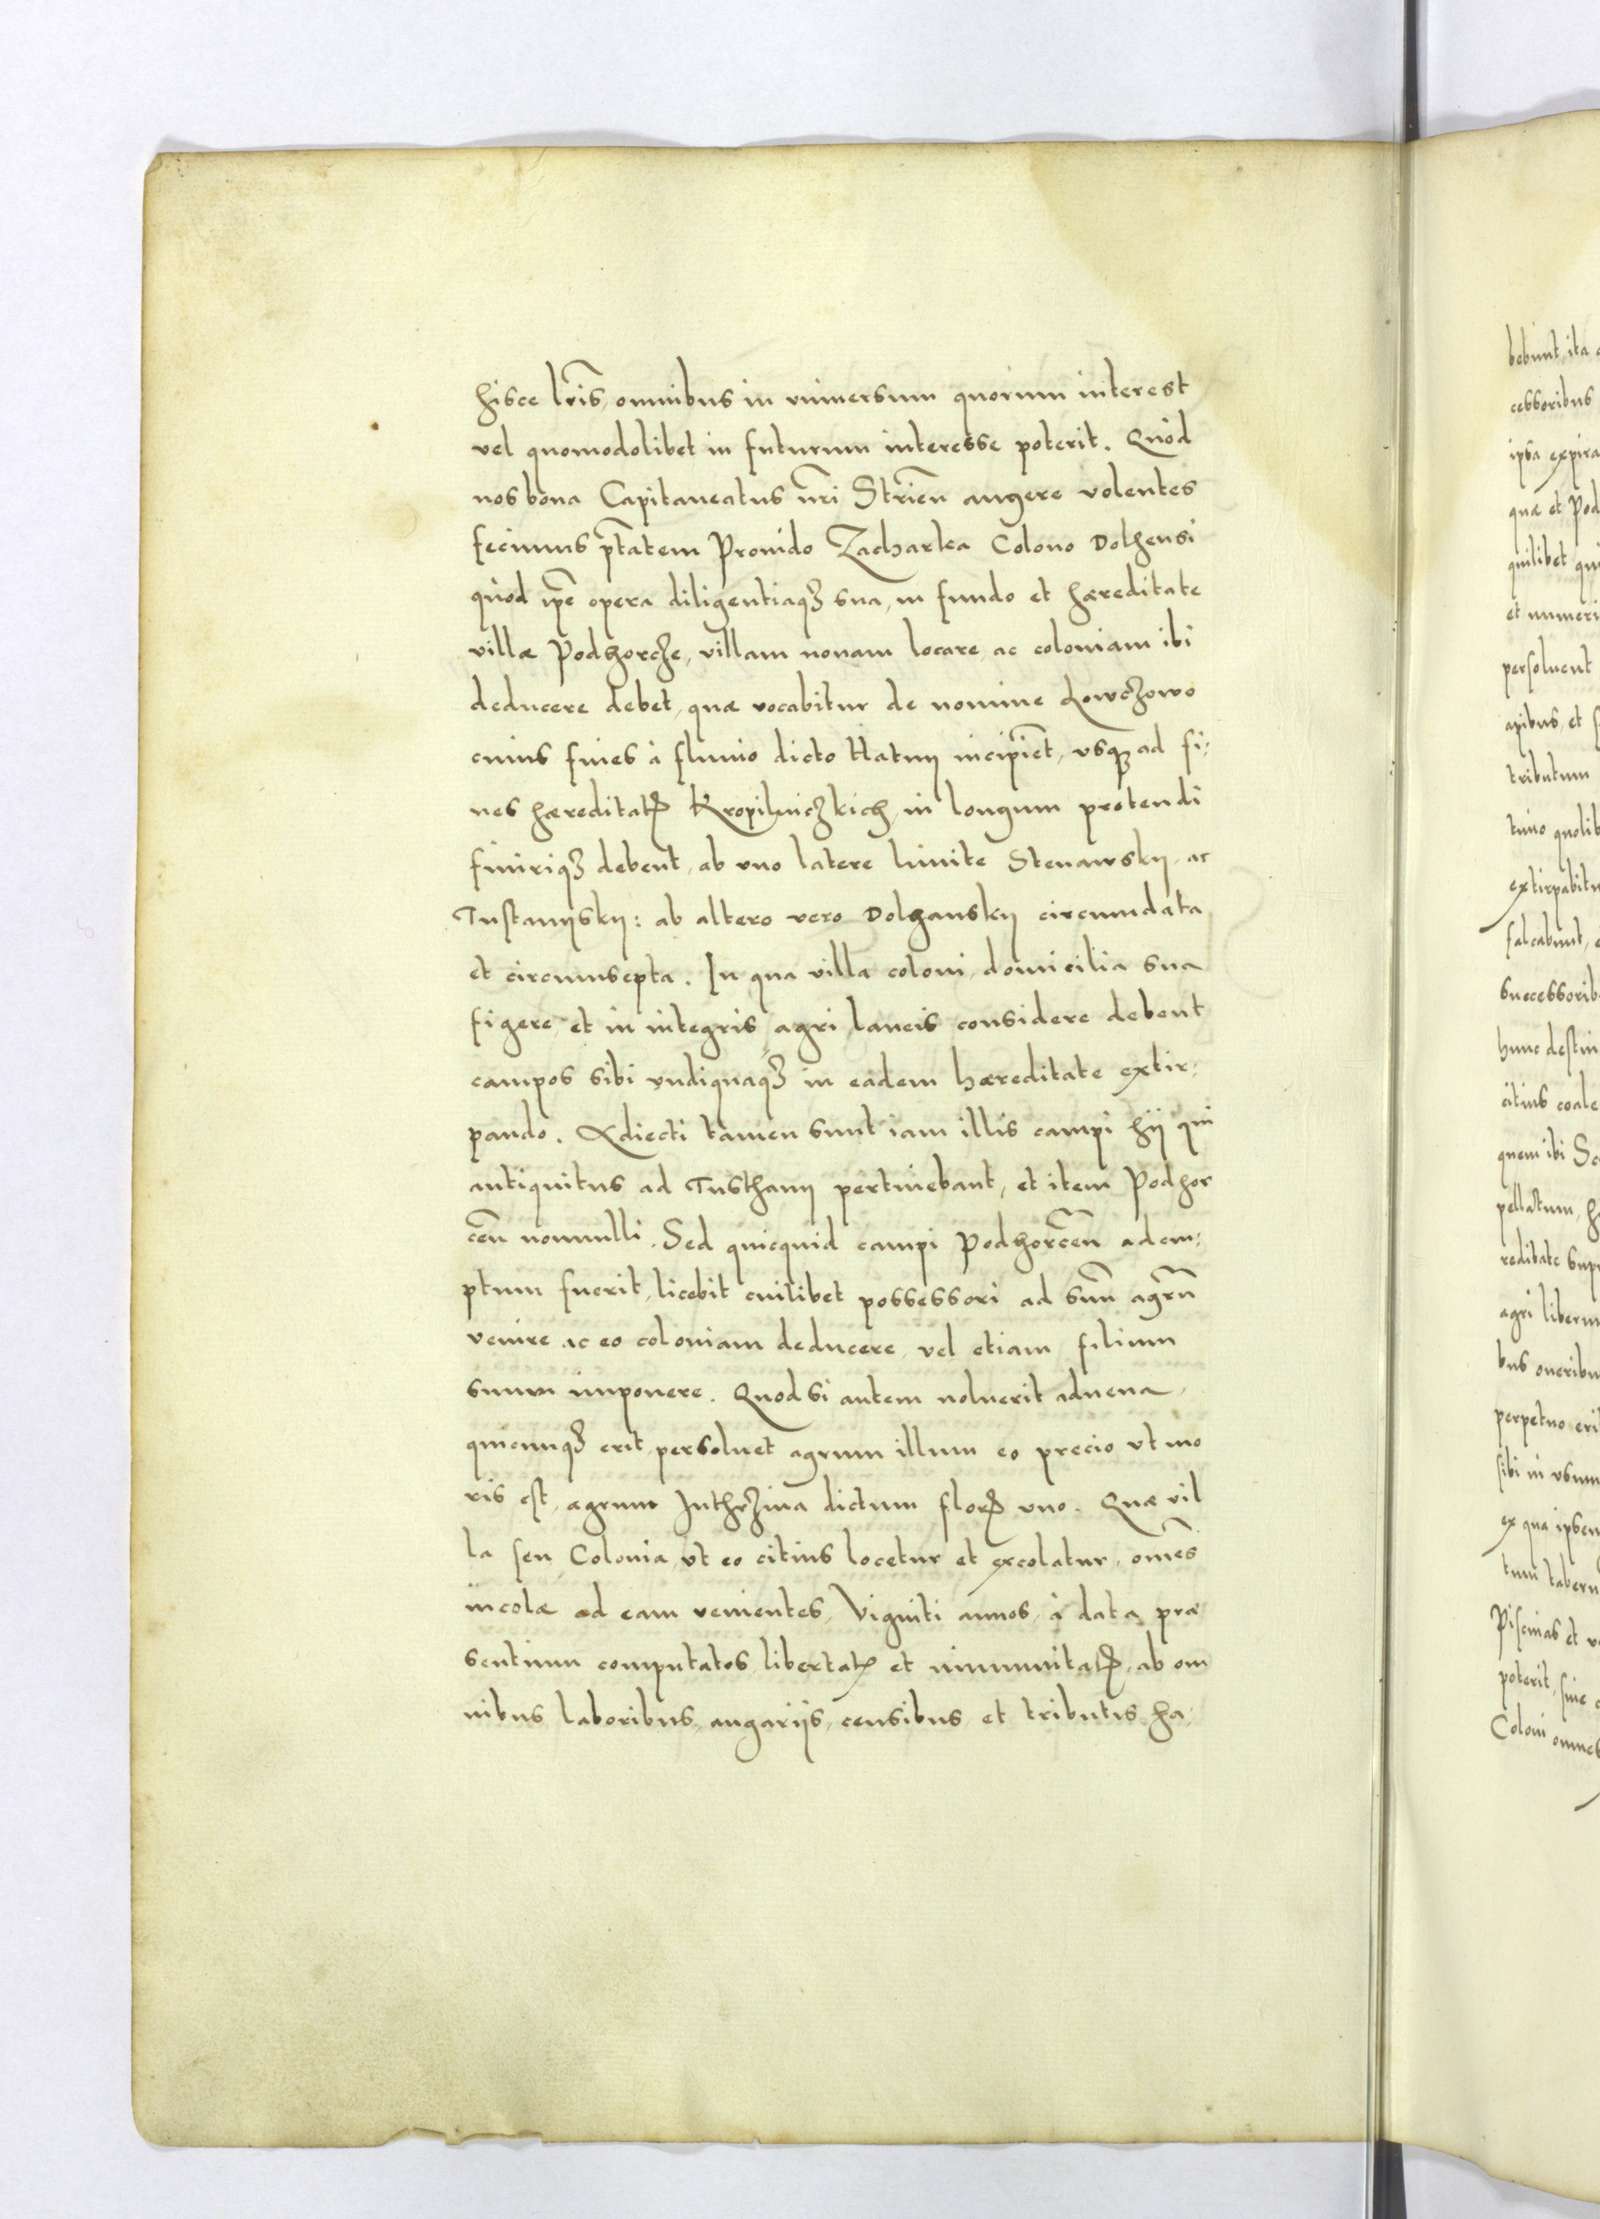 hisce lr̃is, omnibus in vniuersum quorum interest
vel quomodolibet in futurum interesse poterit. Quòd
nos bona Capitaneatus nr̃i Strien̄ augere volentes
fecimus p̃tatem Prouido Zacharka Colono Dolhensi
quòd ip̃e opera diligentiaqꝫ sua, in fundo et hæreditate
villæ Podhorcze, villam nouam locare, ac coloniam ibi
deducere debet, quæ vocabitur de nomine Lowczowo
cuius fines à fluuio dicto Hatny incipient, vsqꝫ ad fi:
nes hæreditatꝭ Kropilniczkich, in longum protendi
finiriqꝫ debent, ab vno latere limite Stenawsky, ac
Tustanijsky: ab altero vero Dolhansky circumdata
et circumsepta. In qua villa coloni, domicilia sua
figere, et in integris, agri, laneis considere debent
campos sibi vndiquaqꝫ in eadem hæreditate extir:
pando. Adiecti tamen sunt iam illis campi hij qui
antiquitus ad Tusthany pertinebant, et item Podhor
cen̄ nonnulli. Sed quicquid campi Podhorcen̄ adem:
ptum fuerit, licebit cuilibet possessori ad suũ agrũ
venire ac eo coloniam deducere, vel etiam filium
suum imponere. Quod si autem noluerit aduena,
quicunqꝫ erit, persoluet agrum illum eo precio vt mo
ris est, agrum Inthrzina dictum florꝭ vno. Quæ vil
la seu Colonia, vt eo citius locetur et excolatur, om̃es
incolæ ad eam venientes, Viginti annos, à data præ
sentium computatos, libertatꝭ et immunitatꝭ, ab om
nibus laboribus, angarijs, censibus, et tributis ha:
bebunt, ita
cessoribus
ipsa expira
quæ et Pod
quilibet qui
et numeri
persoluent
apibus, et
tributum
tuno quolib
extirpabitu
falcabunt,
successorib
hunc destin
citius coale
quem ibi
pellatum,
reditate sup
agri liberum
bus oneribu
perpetuo eri
sibi in vsum
ex qua ipsen
tum tabern
Piscinas et
poterit, siue
Coloni omnes